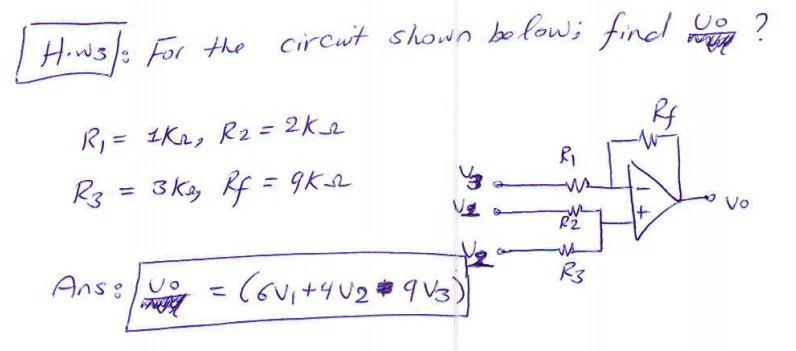 H.w3: For the circuit shown below; find Uo ?
R1 = 1KΩ, R2 = 2KΩ
R3 = 3KΩ, Rf = 9KΩ
Rf
R1
V3
V1
R2
V2
R3
Vo
Ans: Uo = (6V1+4V2 9V3)